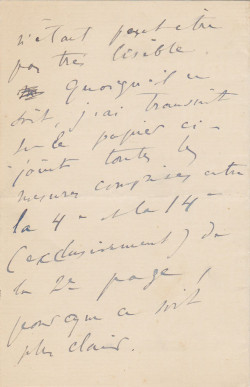 n'étant peut-être
pas très lisible.
Quoiqu'il en
soit, j'ai transcrit
sur le papier ci-
joint toutes les
mesures comprises entre
la 4e et la 14e
(exclusivement) de
la 2e page,
pour que ce soit
plus clair.